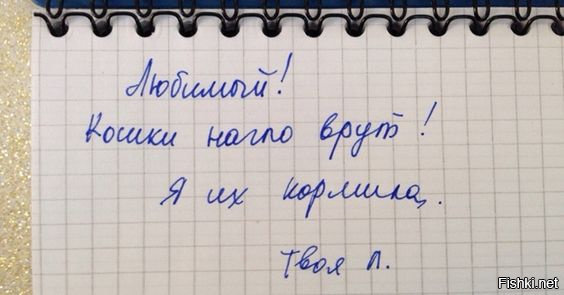 Любимый!
Кошки нагло врут!
Я их кормила.
Твоя Л.
Fishki.net